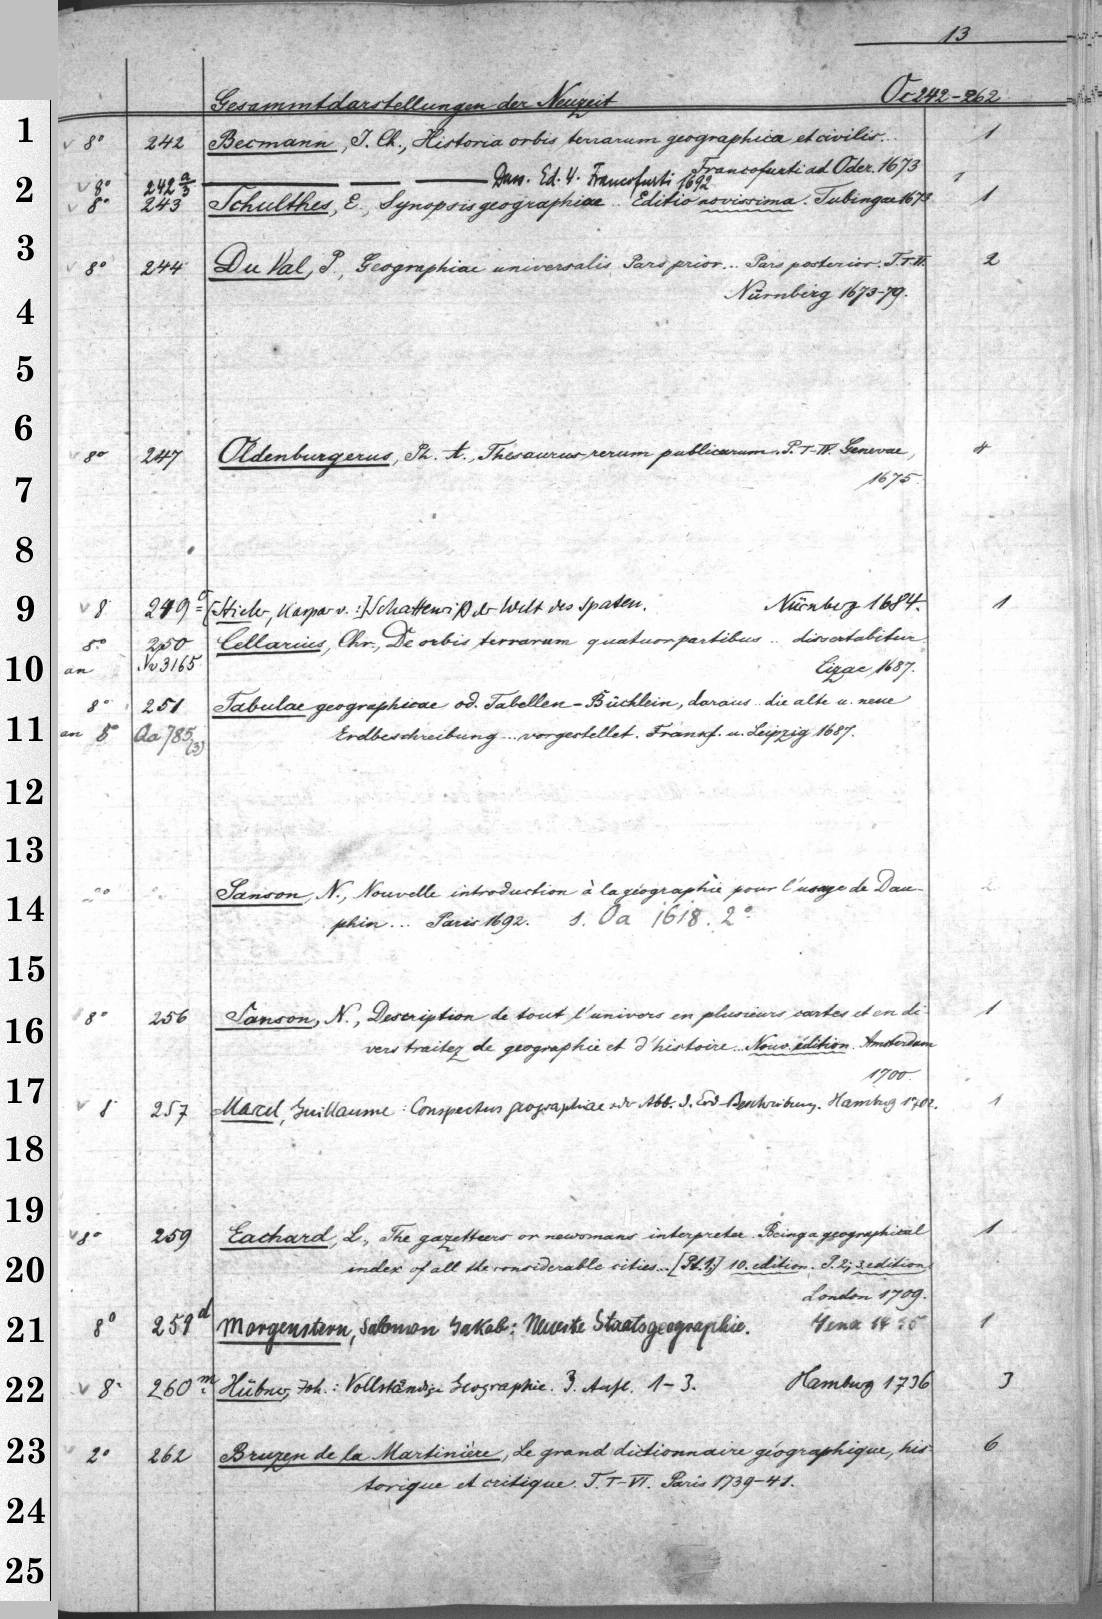 13
Gesammtdarstellungen der Neuzeit Oc 242-262
1
v 8° 242 Becmann, J. Ch., Historia orbis terrarum geographica et civilis... 1
Francofurti ad Oder. 1673
2
v 8° 242 a/3 Dass. Ed. 4. Francofurti 1692 1
v 8° 243 Schulthes, E., Synopsis geographiae .. Editio novissima. Tubingae 1673 1
3
v 8° 244 Du Val, P., Geographiae universalis Pars prior... Pars posterior. T. I-II. 2
Nürnberg 1673-79.
4
5
6
v 8° 247 Oldenburgerus, Ph. A., Thesaurus rerum publicarum. P. I-IV. Genevae, 4
1675.
7
8
9
v 8 249 [Stieler, Kaspar v. :] Schattenriß der Welt des Spaten. Nürnberg 1684. 1
8° 250 Cellarius, Chr., De orbis terrarum quatuor partibus .. dissertabitur
10
an Nv 3165 Cizae, 1687.
8° 251 Tabulae geographicae od. Tabellen-Büchlein, daraus .. die alte u. neue
11
an 8° Oa 785 (3) Erdbeschreibung ... vorgestellet. Frankf. u. Leipzig 1687.
12
13
2° Sanson, N., Nouvelle introduction à la géographie pour l'usage de Dau- 2
14
phin ... Paris 1692. s. Oa 1618. 2°
15
v 8° 256 Sanson, N., Description de tout l'univers en plusieurs cartes et en di- 1
16
vers traitez de geographie et d'histoire... Nouv. édition. Amsterdam
1700.
17
v 8 257 Marcel, Guillaume : Conspectus geographiae oder Abb. d. Erd-Beschreibung. Hamburg 1702. 1
18
19
v 8° 259 Eachard, L., The gazetteers or newsmans interpreter. Being a geographical 1
20
index of all the considerable cities... [Pt. 1;] 10. edition. P. 2; 3. edition
London 1709.
21
8° 259d Morgenstern, Salomon Jakob: Neueste Staatsgeographie. Jena 1
22
v 8° 260m Hübner, Joh. : Vollständige Geographie. 3. Aufl. 1-3. Hamburg 1736 3
23
v 2° 262 Bruzen de la Martinière, Le grand dictionnaire géographique, his- 6
torique et critique. T. I-VI. Paris 1739-41.
24
25